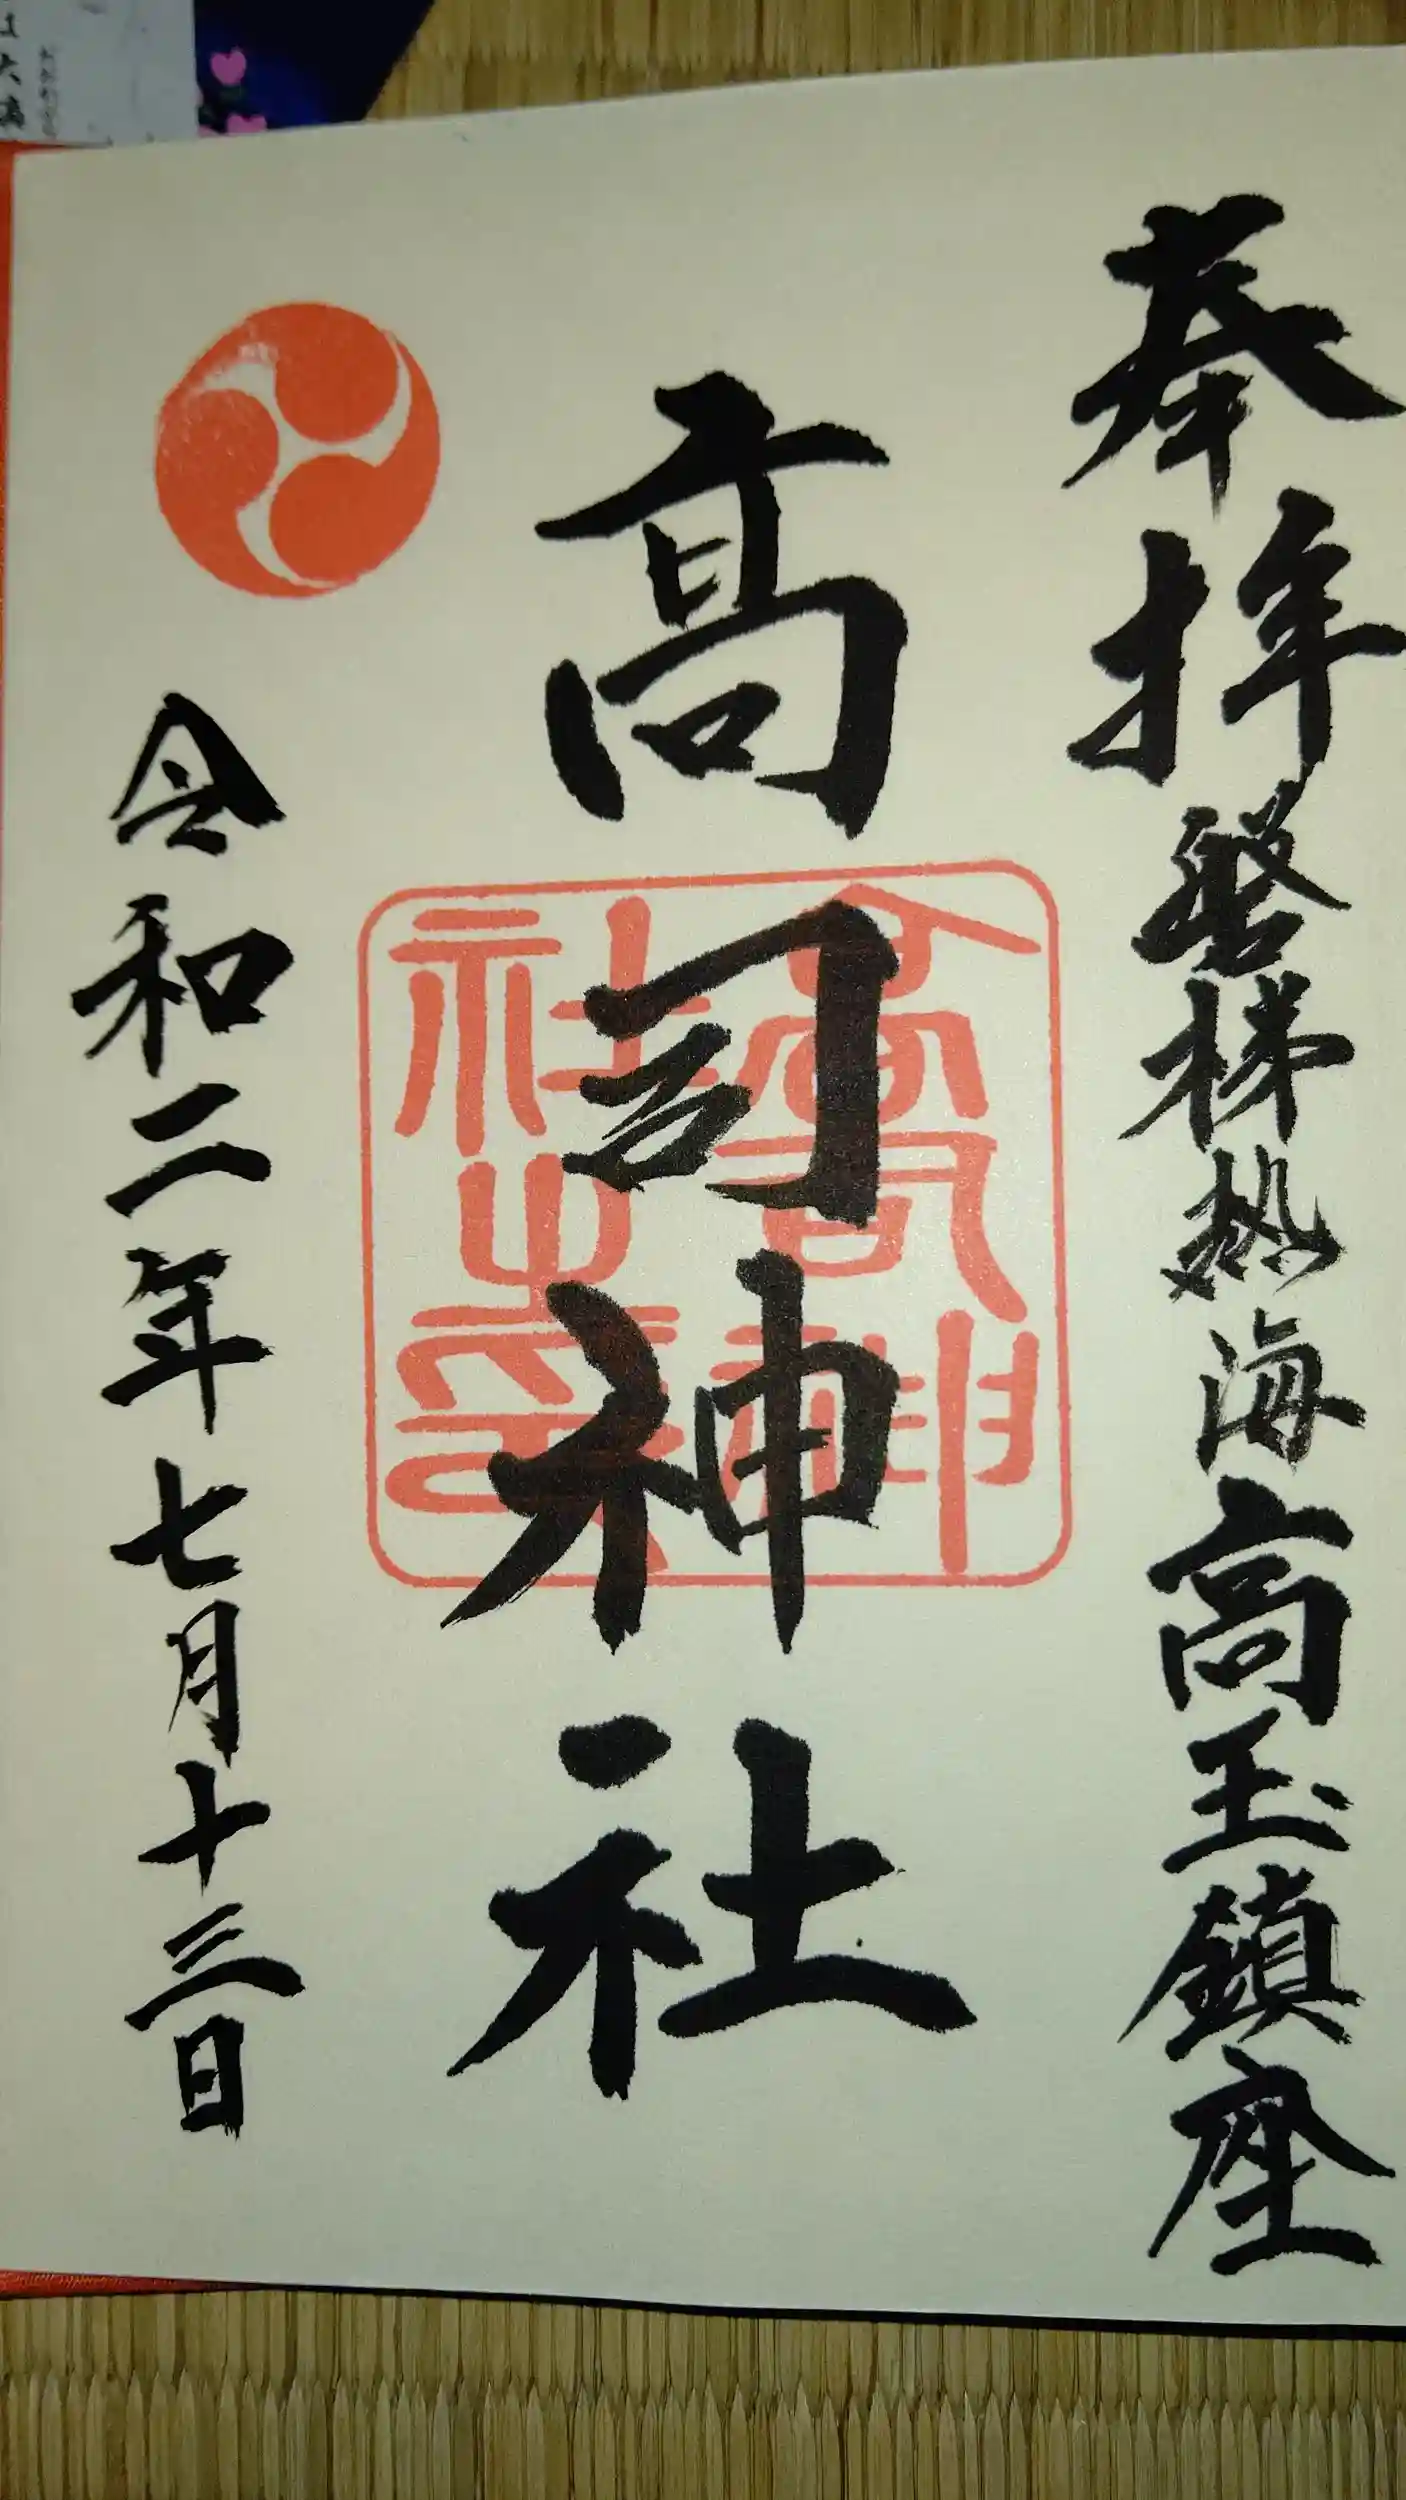 奉拝 磐梯熱海高玉鎮座
高司神社
高司神社之印
令和二年七月十三日